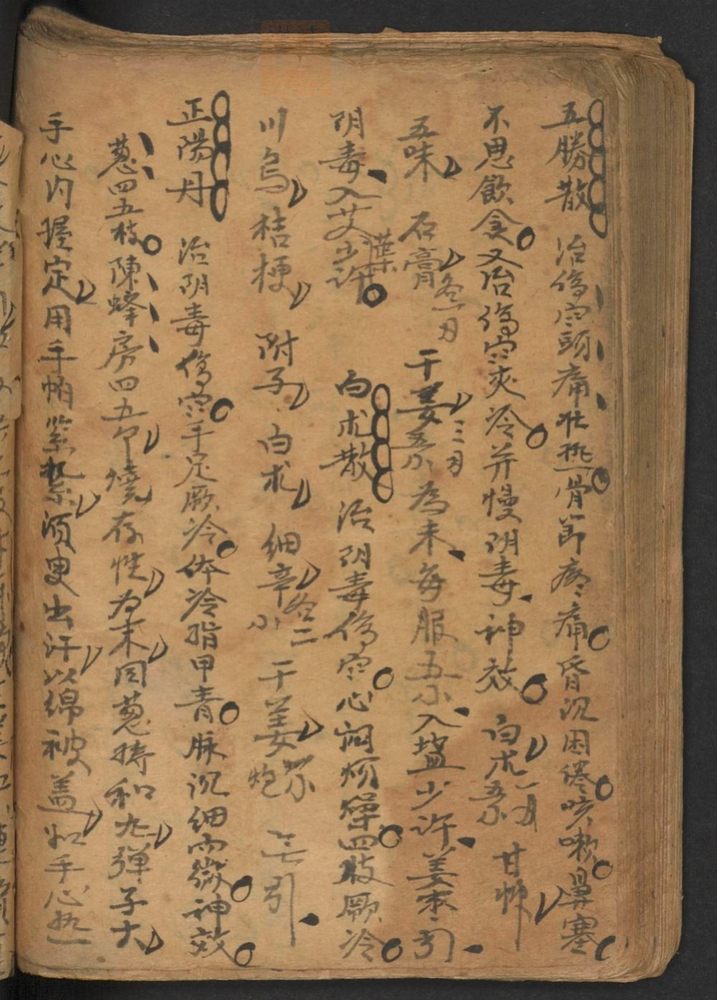 五勝散 治傷寒頭痛壯热骨節疼痛昏沉困倦咳嗽鼻塞
不思飲食又治傷寒夾冷并慢阴毒神效 白朮一月 甘艸
五味 石膏各一月 干姜三月 為末每服五 入塩少許姜枣引
阴毒入艾葉少許 白朮散 治阴毒傷寒心闷烦燥四肢厥冷
川烏 桔梗 附子 白朮 细辛 各二 干姜炮 引
正陽丹 治阴毒傷寒手足厥冷体冷指甲青脉沉细而微神效
葱四五枝陳蜂房四五个燒存性为末同葱捣和丸弹子大
手心内握定用手帕紧 須臾出汗以绵被盖如手心热